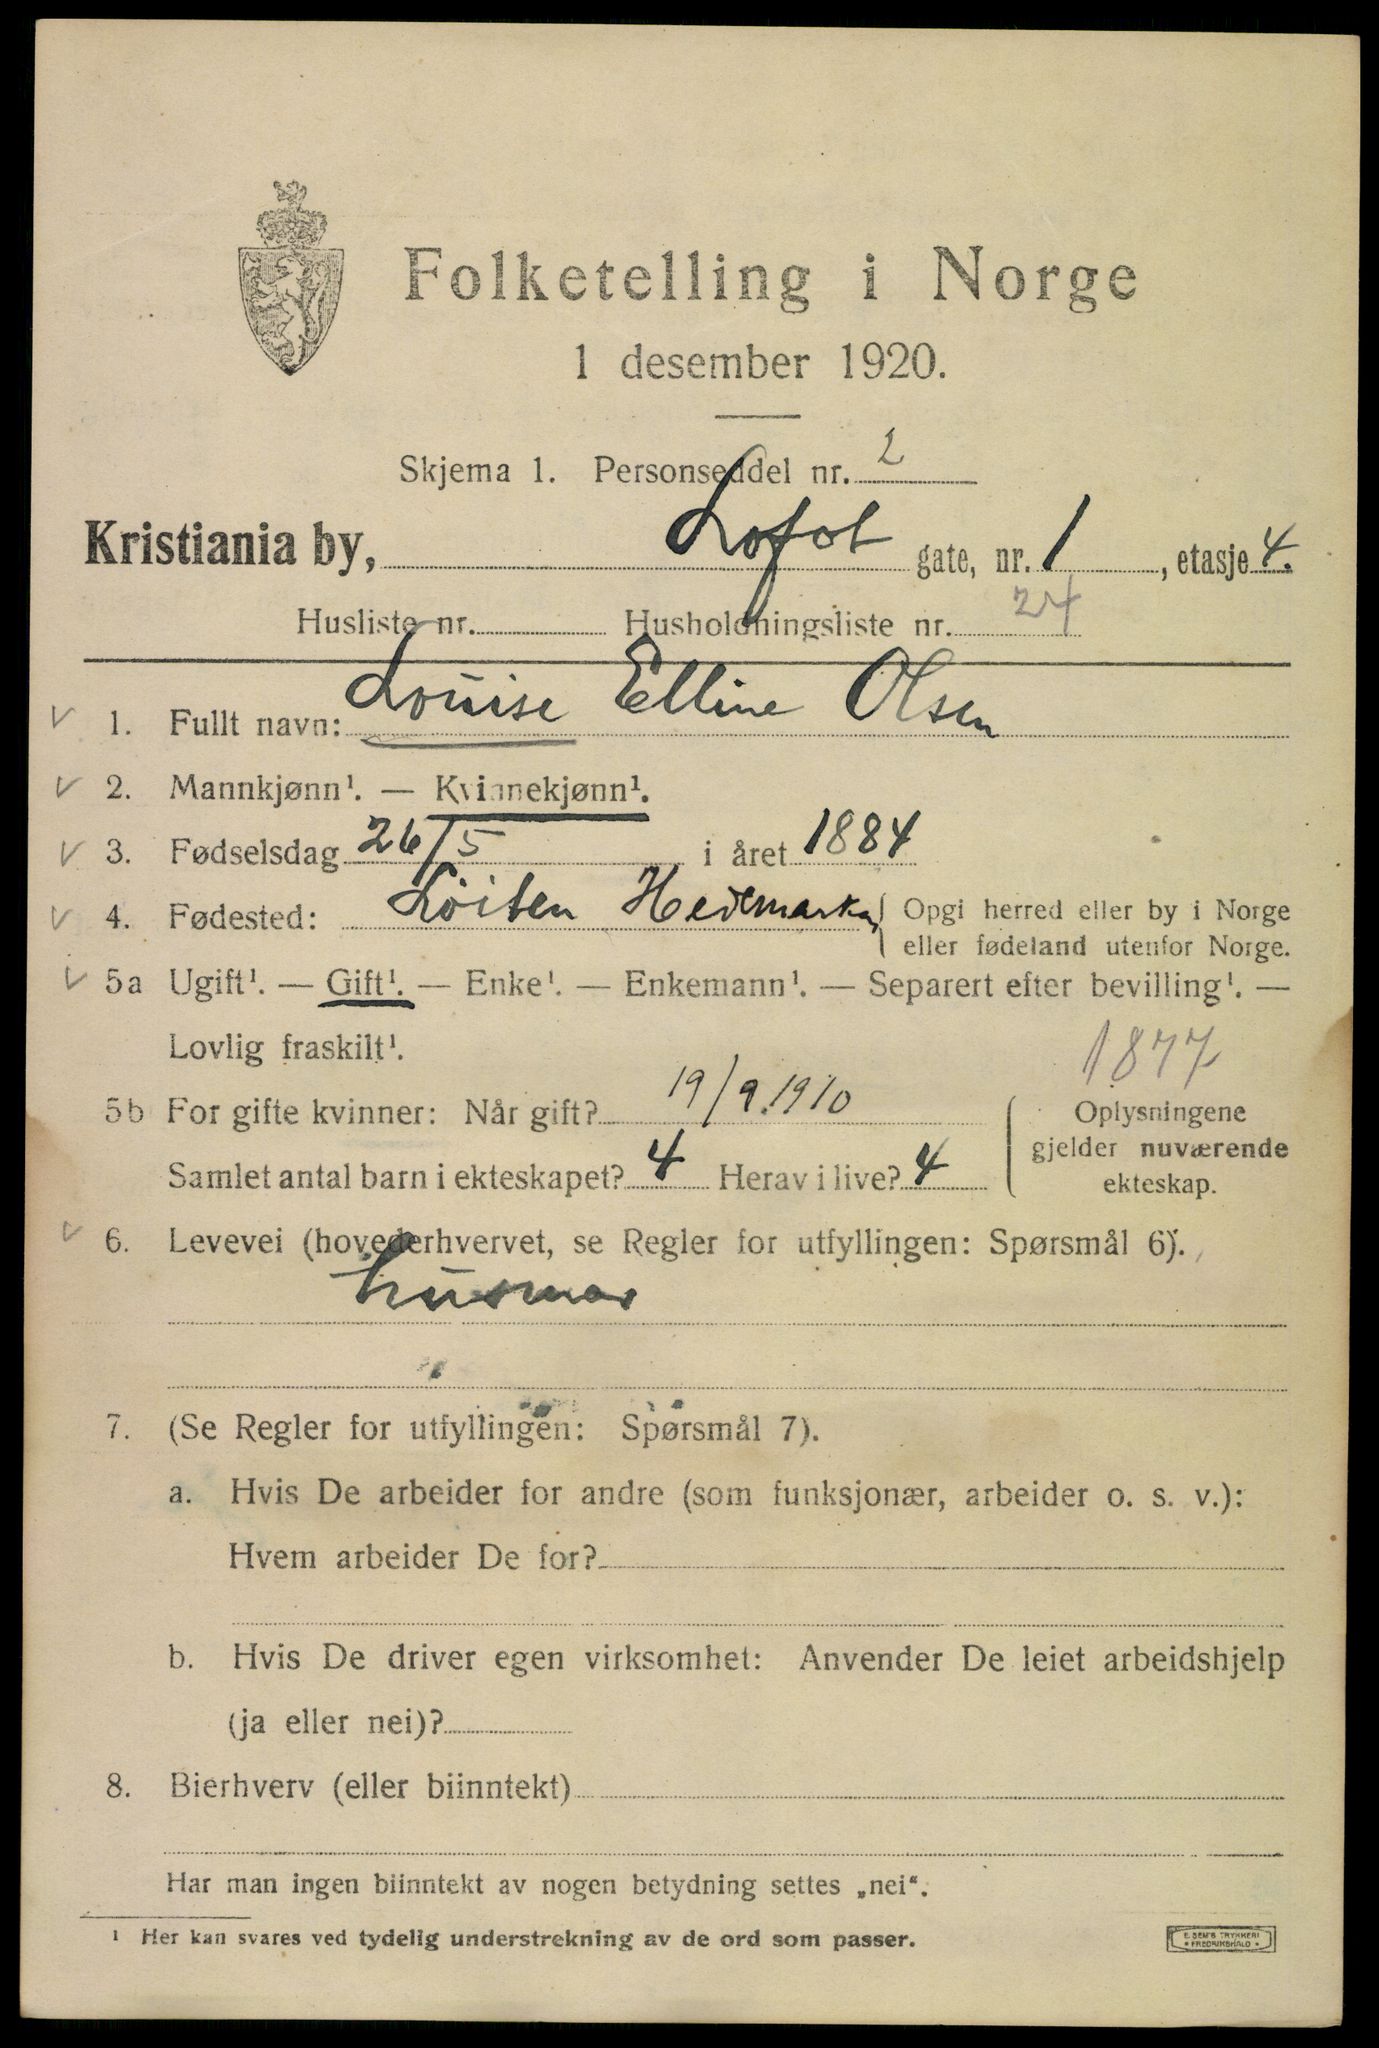 Folketelling i Norge
1 desember 1920.
Skjema 1. Personseddel nr. 2
Kristiania by, Lofot gate, nr. 1, etasje 4.
Husliste nr. Husholdningsliste nr. 24
1. Fullt navn: Louise Elline Olsen
2. Mannkjønn¹. — Kvinnekjønn¹.
3. Fødselsdag 26/5 i året 1884
4. Fødested: Löiten Hedemarken Opgi herred eller by i Norge
eller fødeland utenfor Norge.
5a Ugift¹. — Gift¹. — Enke¹. — Enkemann¹. — Separert efter bevilling¹. —
Lovlig fraskilt¹.
1877
5b For gifte kvinner: Når gift? 19/9.1910 Oplysningene
gjelder nuværende
Samlet antal barn i ekteskapet? 4 Herav i live? 4
ekteskap.
6. Levevei (hovederhvervet, se Regler for utfyllingen: Spørsmål 6).
husmor
7. (Se Regler for utfyllingen: Spørsmål 7).
a. Hvis De arbeider for andre (som funksjonær, arbeider o. s. v.):
Hvem arbeider De for?
b. Hvis De driver egen virksomhet: Anvender De leiet arbeidshjelp
(ja eller nei)?
8. Bierhverv (eller biinntekt)
Har man ingen biinntekt av nogen betydning settes „nei“.
¹ Her kan svares ved tydelig understrekning av de ord som passer.
E. SEM'S TRYKKERI
• FREDRIKSHALD •